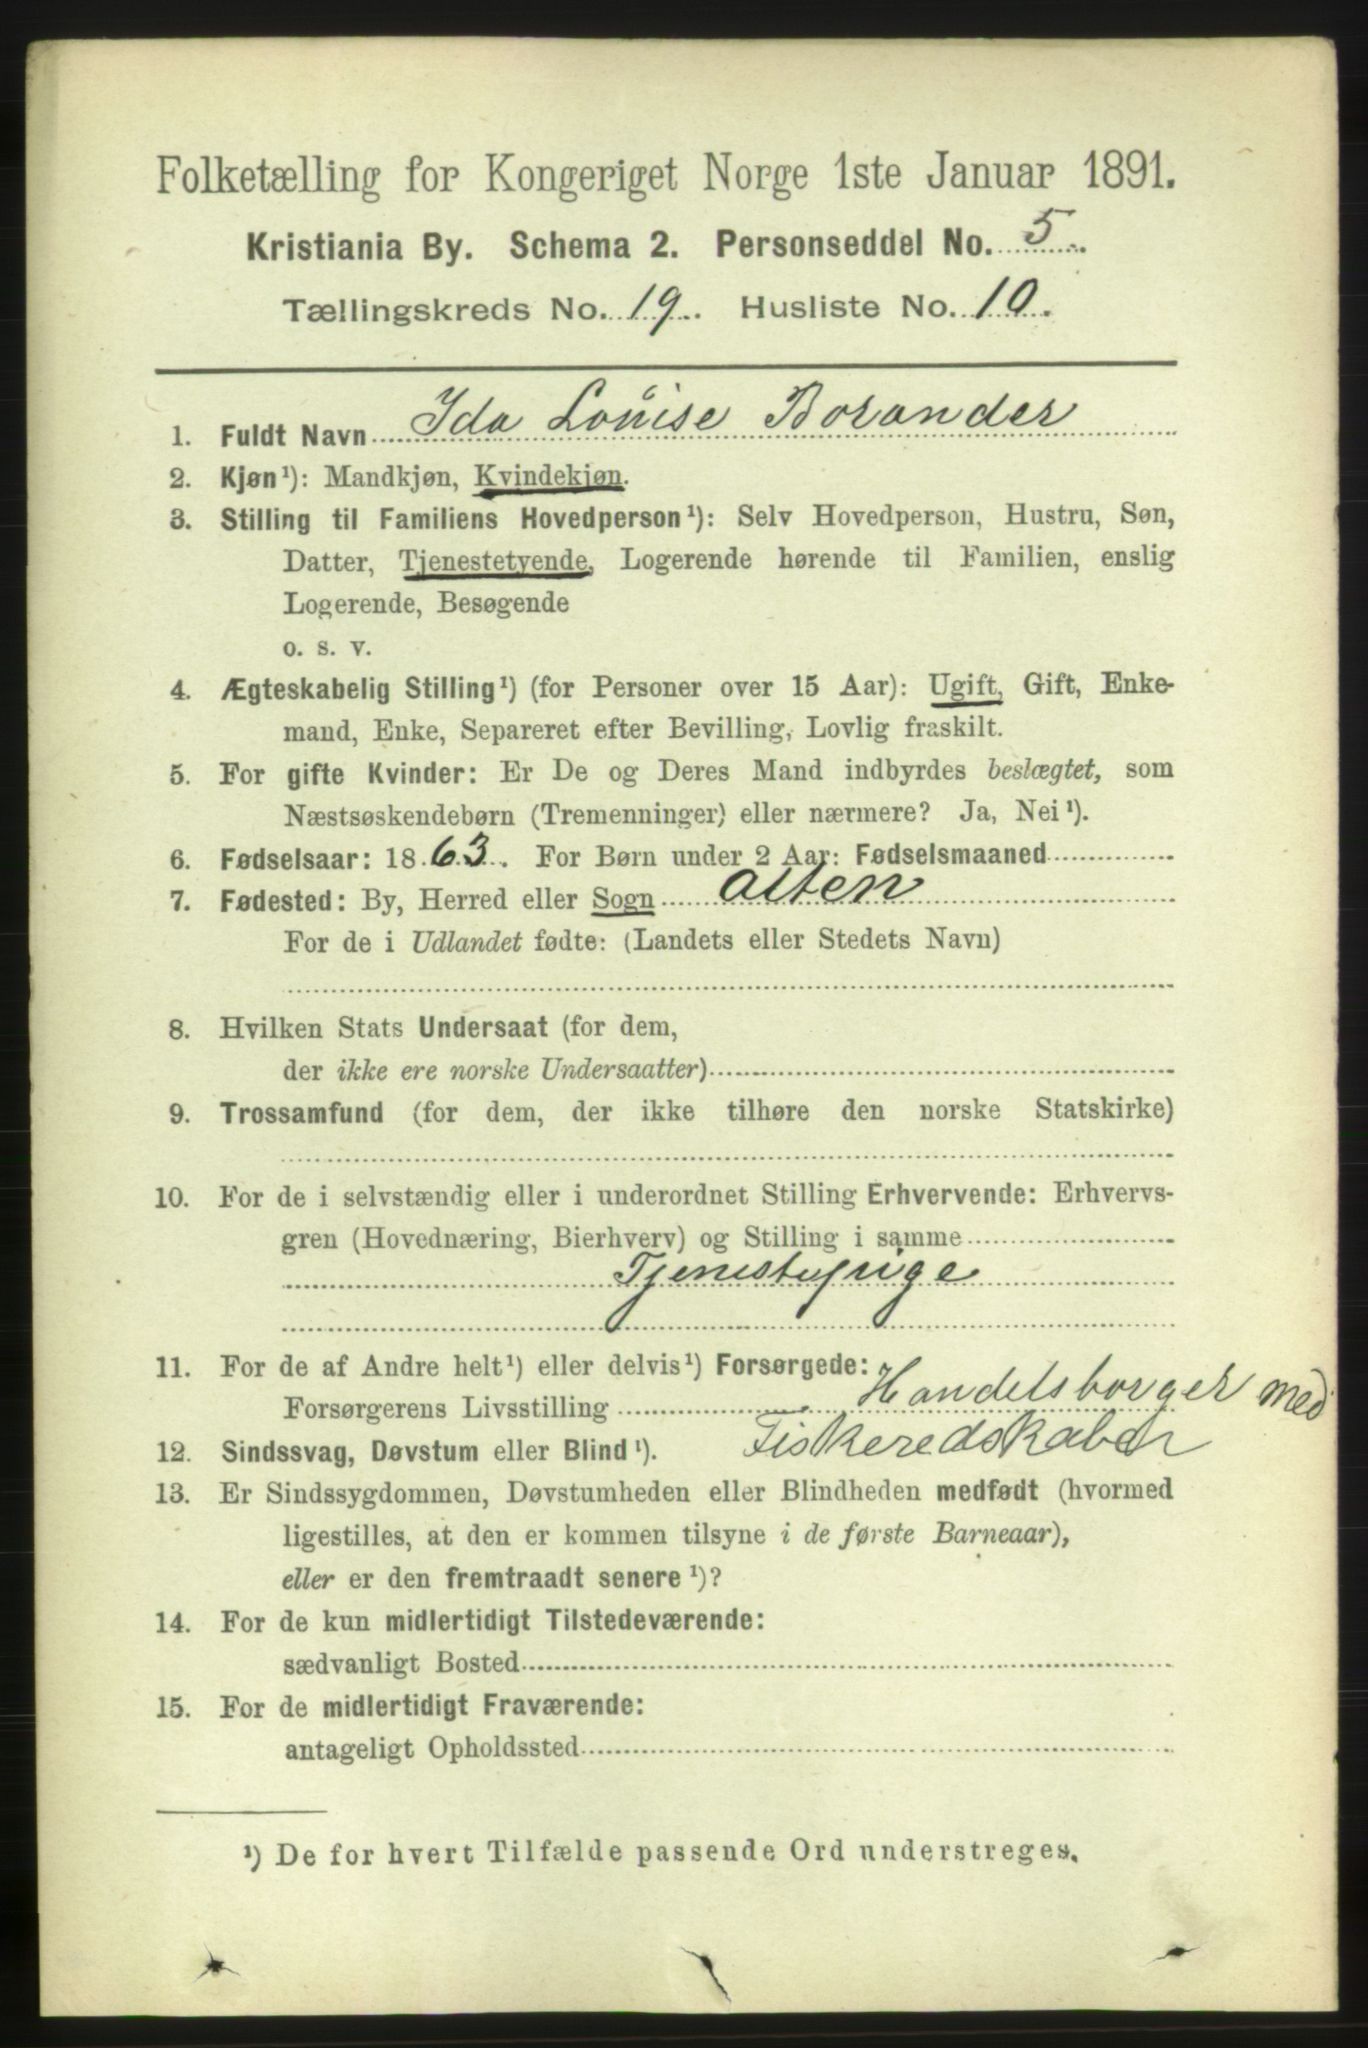 Folketælling for Kongeriget Norge 1ste Januar 1891.
Kristiania By. Schema 2. Personseddel No. 5.
Tællingskreds No. 19. Husliste No. 10.
1. Fuldt Navn Ida Louise Borander
2. Kjøn¹): Mandkjøn, Kvindekjøn.
3. Stilling til Familiens Hovedperson¹): Selv Hovedperson, Hustru, Søn,
Datter, Tjenestetyende, Logerende hørende til Familien, enslig
Logerende, Besøgende
o. s. v.
4. Ægteskabelig Stilling¹) (for Personer over 15 Aar): Ugift, Gift, Enke-
mand, Enke, Separeret efter Bevilling, Lovlig fraskilt.
5. For gifte Kvinder: Er De og Deres Mand indbyrdes beslægtet, som
Næstsøskendebørn (Tremenninger) eller nærmere? Ja, Nei¹).
6. Fødselsaar: 1863. For Børn under 2 Aar: Fødselsmaaned
7. Fødested: By, Herred eller Sogn Alten
For de i Udlandet fødte: (Landets eller Stedets Navn)
8. Hvilken Stats Undersaat (for dem,
der ikke ere norske Undersaatter)
9. Trossamfund (for dem, der ikke tilhøre den norske Statskirke)
10. For de i selvstændig eller i underordnet Stilling Erhvervende: Erhvervs-
gren (Hovednæring, Bierhverv) og Stilling i samme
Tjenestepige
11. For de af Andre helt¹) eller delvis¹) Forsørgede:
Forsørgerens Livsstilling Handelsborger med
Fiskeredskaber
12. Sindssvag, Døvstum eller Blind¹).
13. Er Sindssygdommen, Døvstumheden eller Blindheden medfødt (hvormed
ligestilles, at den er kommen tilsyne i de første Barneaar),
eller er den fremtraadt senere¹)?
14. For de kun midlertidigt Tilstedeværende:
sædvanligt Bosted
15. For de midlertidigt Fraværende:
antageligt Opholdssted
¹) De for hvert Tilfælde passende Ord understreges.